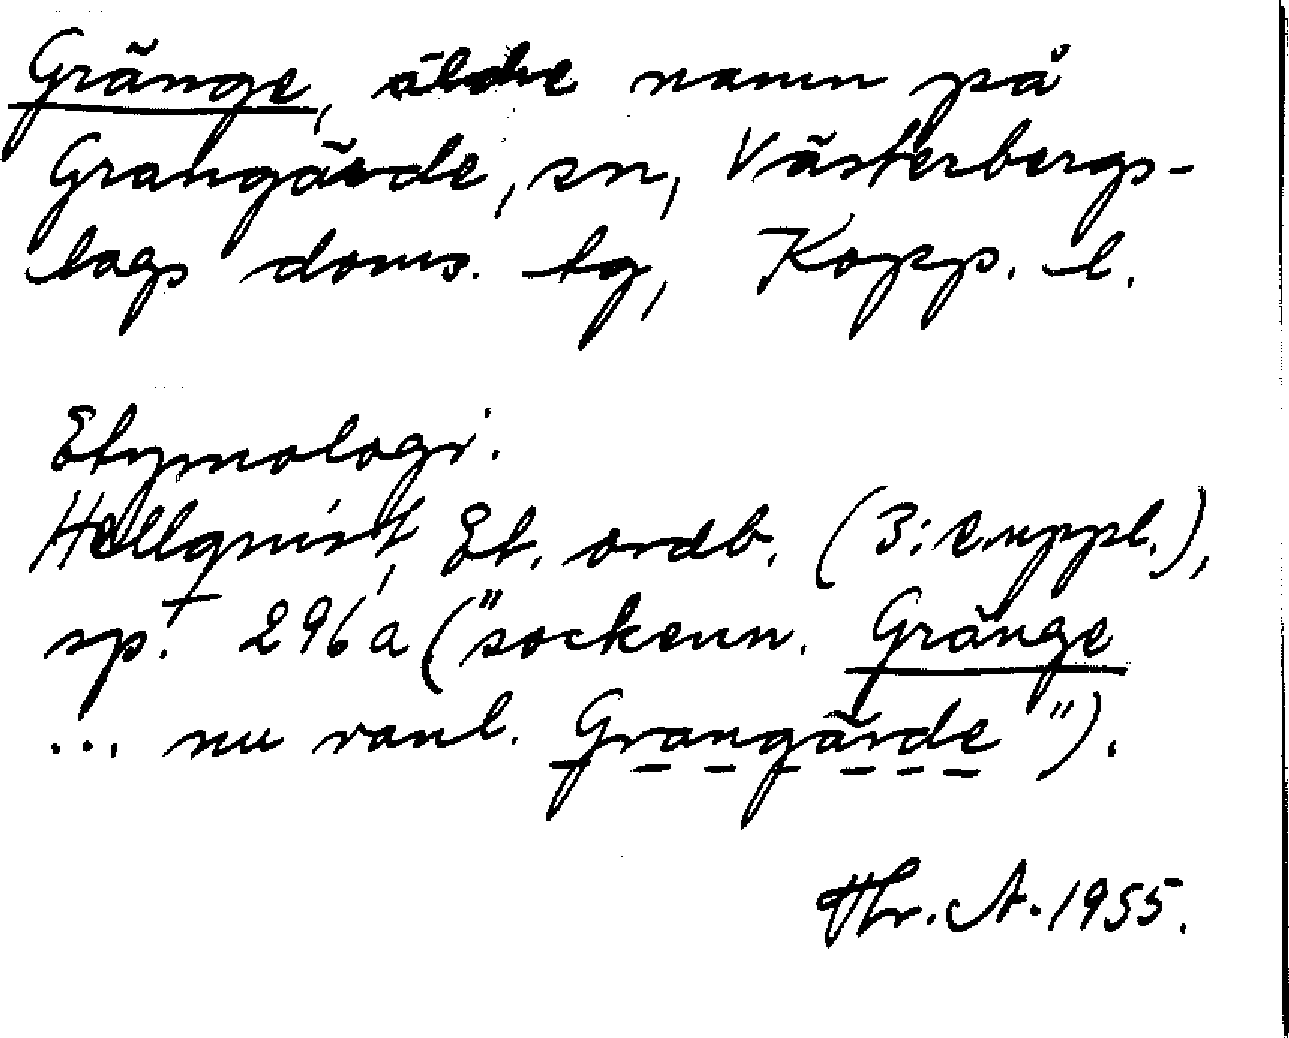 Gränge, äldre namn på
Grangärde, sn, Västerbergs-
lags doms. tg, Kopp. l.
Etymologi.
Hellquist, Et. ordb. (3:e uppl.),
sp. 296a ("sockenn. Gränge
... nu vanl. Grangärde").
Hr. A. 1955.